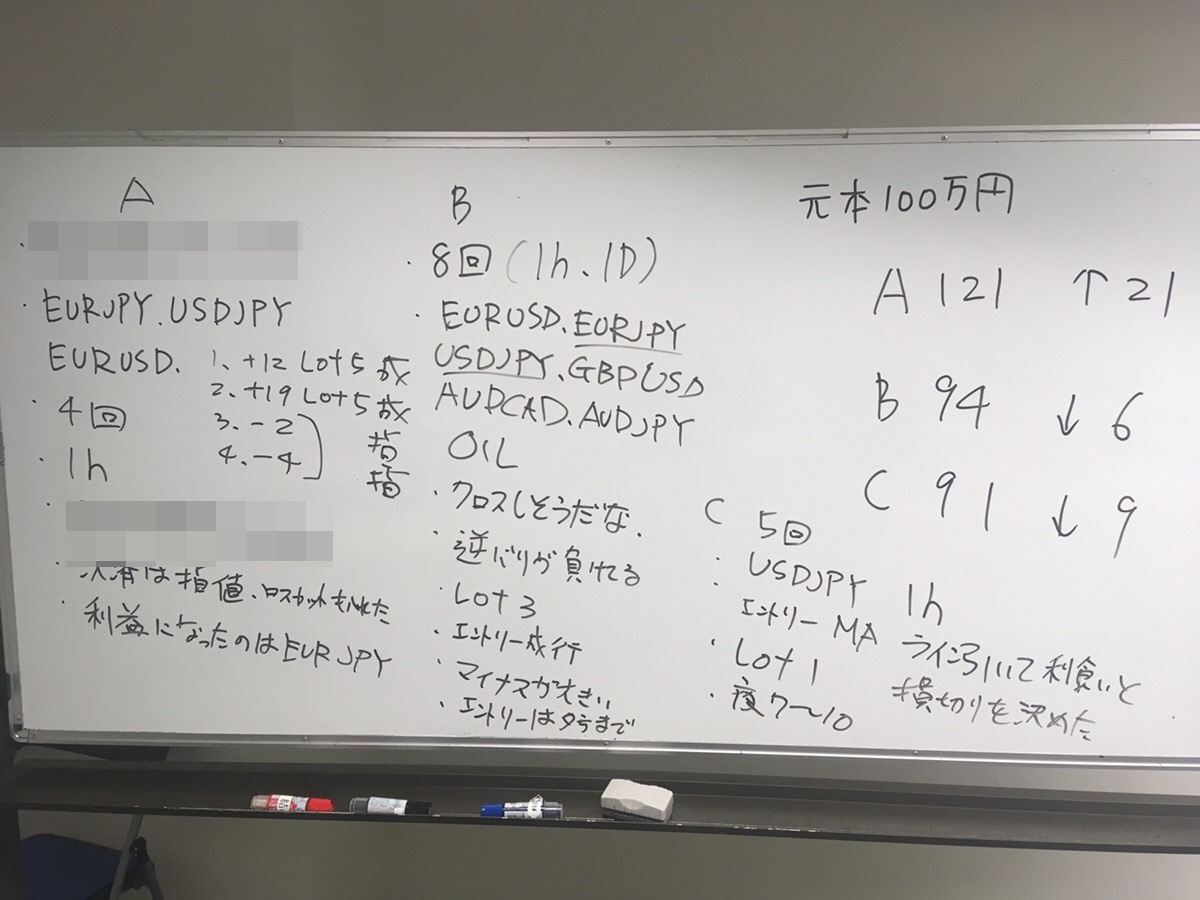 A
・EURJPY.USDJPY
EURUSD.
1. +12 Lot5 成
2. +19 Lot5 成
3. -2 指
4. -4 指
・4回
・1h
・決済は指値、ロスカットもいれた
・利益になったのはEURJPY
B
・8回(1h、1D)
・EURUSD.EURJPY
USDJPY.GBPUSD
AUDCAD.AUDJPY
OIL
・クロスしそうだな.
・逆バリが負けてる
・Lot3
・エントリー成行
・マイナスが大きい
・エントリーは夕方まで
元本100万円
A 121 ↑21
B 94 ↓6
C 91 ↓9
C 5回
: USDJPY 1h
エントリー MA ライン引いて利食いと
損切りを決めた
・Lot1
・夜7〜10